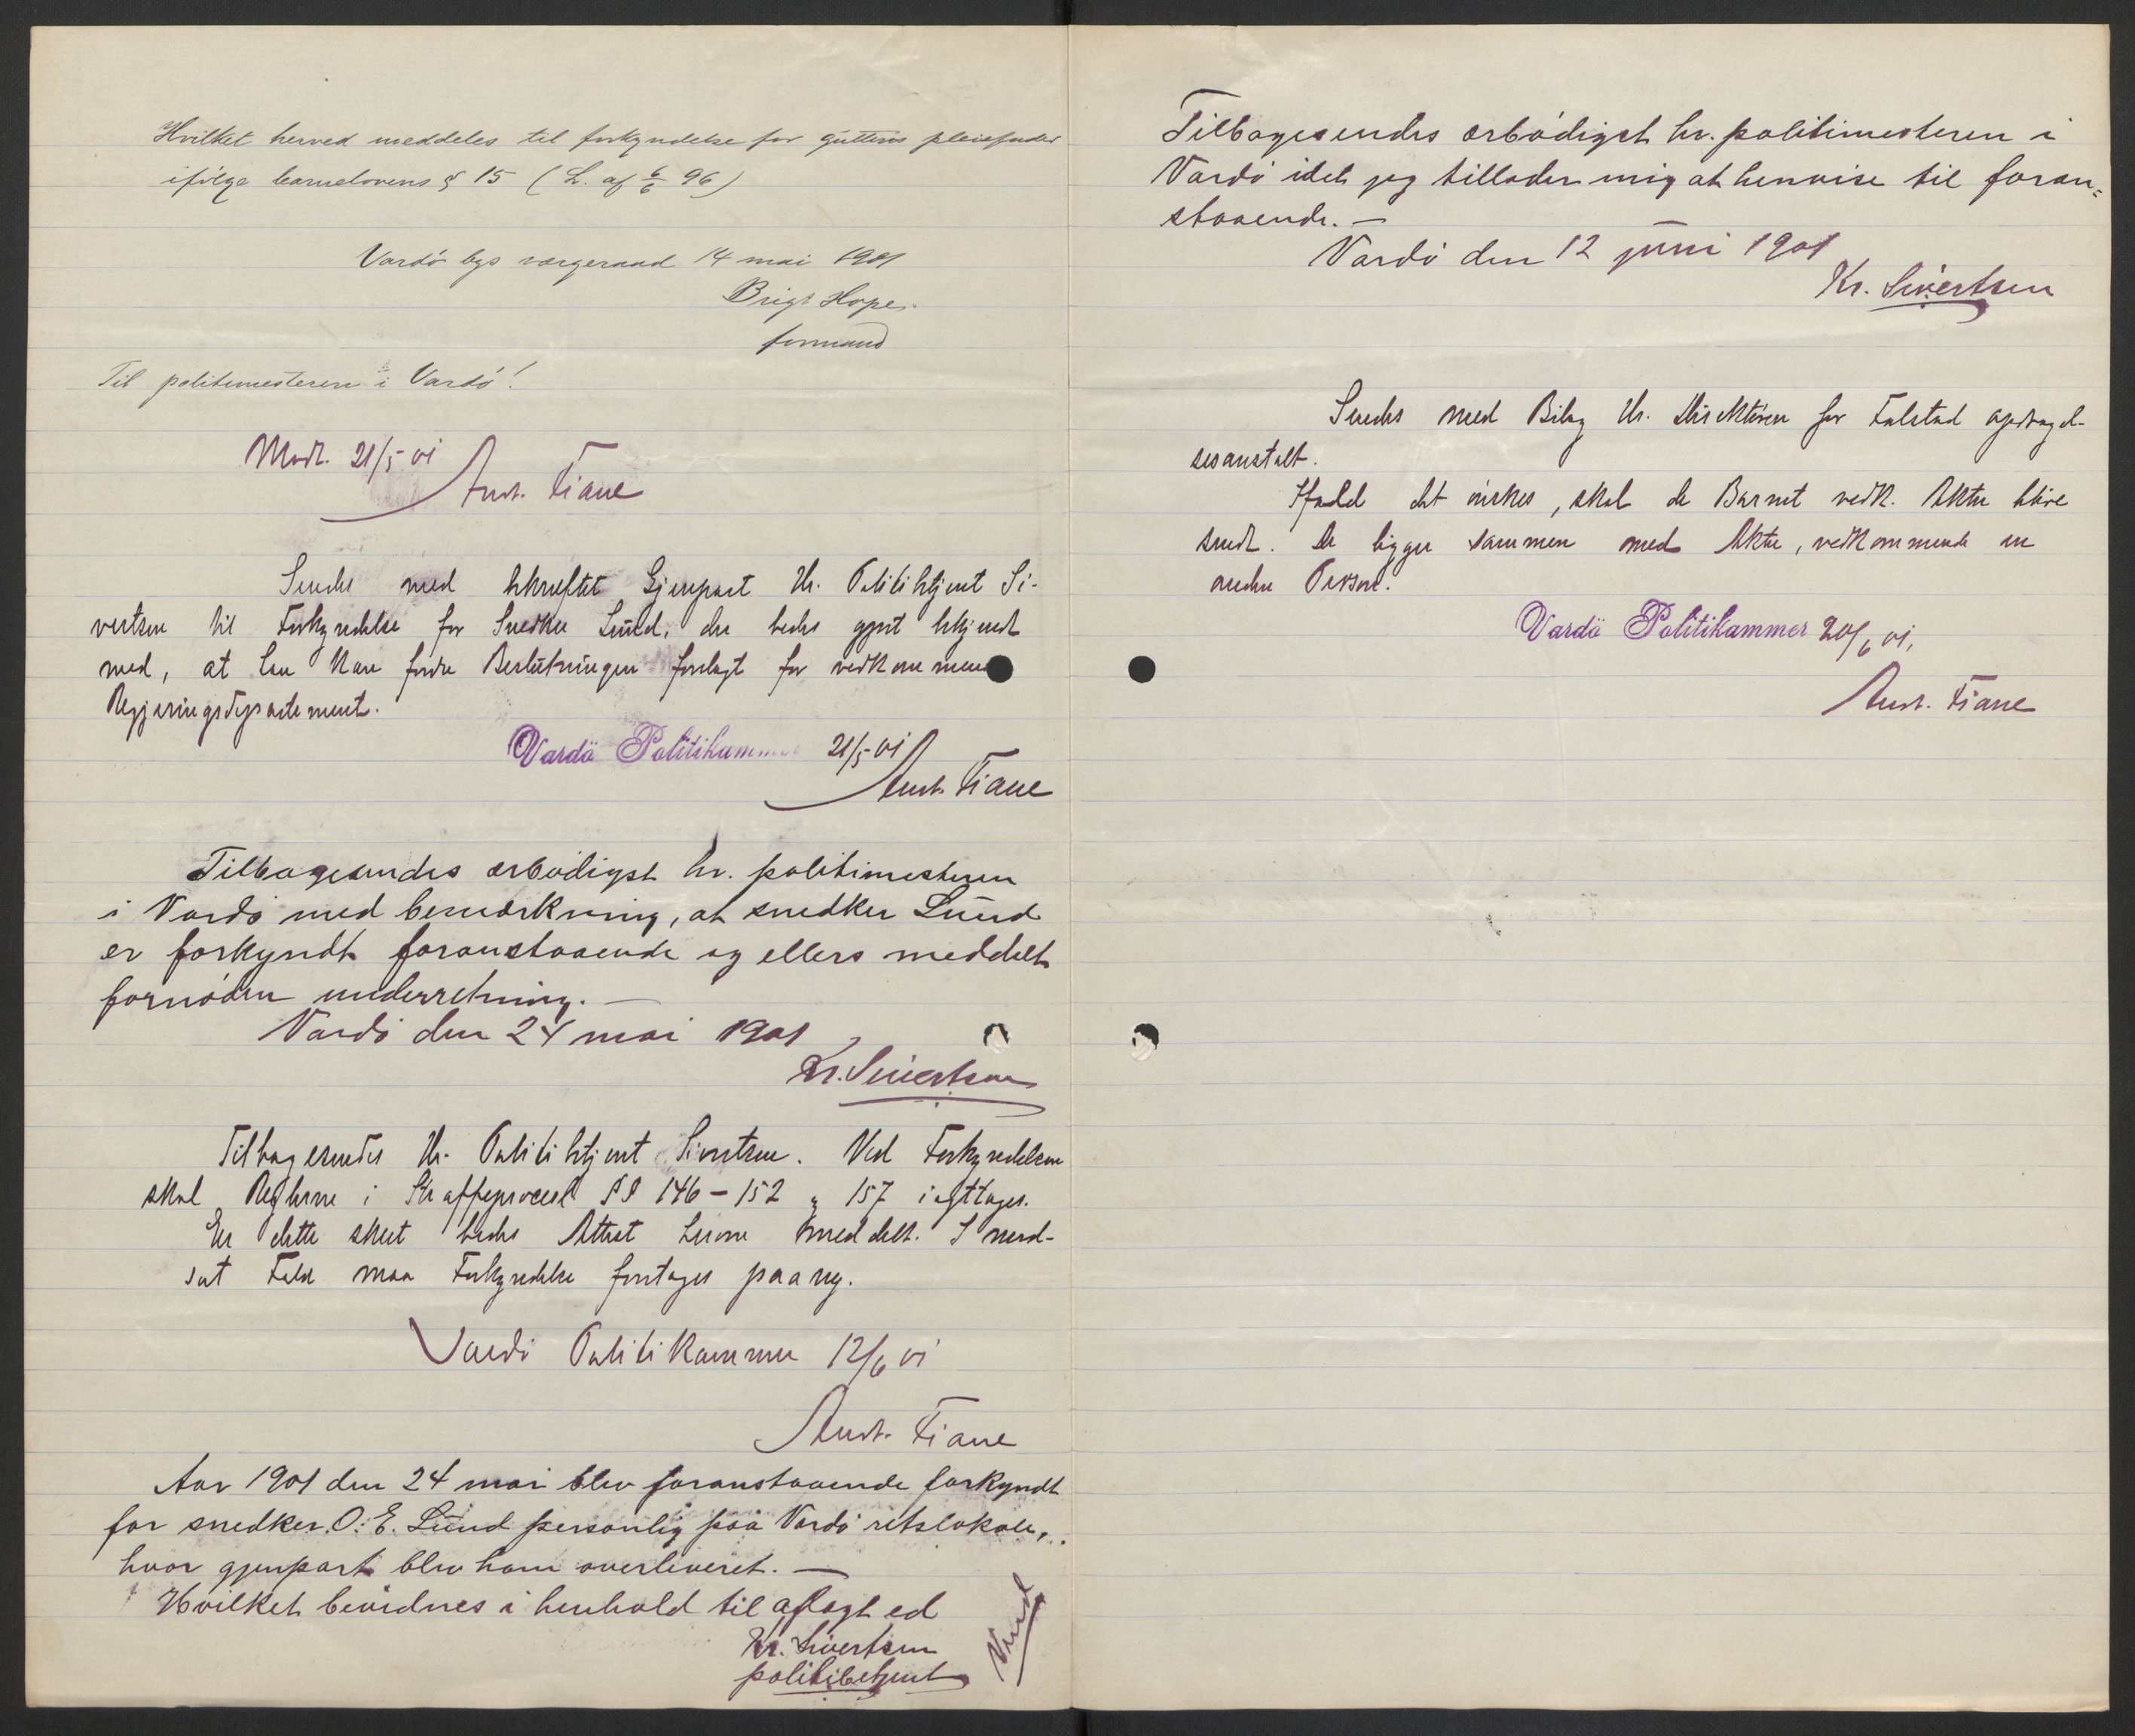 Hvilket herved meddeles til forkyndelse for guttens pleiefader
ifölge barnelovens § 15 (L. af 6/6 96)
Vardö bys vergeraad 14 mai 1901
Brigt Hope.
formand
Til politimesteren i Vardö!
Modt. 21/5 01
Aust. Fiane
Sendes med bekræftet Gjenpart Hr. Politibetjent Si-
vertsen til Forkyndelse for Snedker Lund, der bedes gjort bekjendt
med, at han kan fordre Beslutningen forelagt for vedkommende
Regjeringsdepartement.
Vardö Politikammer 21/5 01
Aust. Fiane
Tilbagesendes ærbödigst hr. politimesteren
i Vardö med bemærkning, at snedker Lund
er forkyndt foranstaaende og ellers meddelt
fornöden underretning. —
Vardö den 24 mai 1901
Kr. Sivertsen
Tilbagesendes Hr. Politibetjent Sivertsen. Ved Forkyndelsen
skal Reglerne i Straffeprocesl §§ 146 - 152 og 157 iagttages.
Er dette skeet bedes Attest herom meddelt. I mod-
sat Fald maa Forkyndelse foretages paa ny.
Vardö Politikammer 12/6 01
Aust. Fiane
Aar 1901 den 24 mai blev foranstaaende forkyndt
for snedker O. E. Lund personlig paa Vardö retslokale,
hvor gjenpart blev ham overleveret. —
Hvilket bevidnes i henhold til aflagt ed
Kr. Sivertsen
politibetjent
Vend
Tilbagesendes ærbödigst hr. politimesteren i
Vardö idet jeg tillader mig at henvise til foran=
staaende. —
Vardö den 12 juni 1901
Kr. Sivertsen
Sendes med Bilag Hr. Direktören for Falstad opdragel-
sesanstalt.
Ifald det önskes, skal de Barnet vedk. Akter blive
sendt. De ligger sammen med Akter, vedkommende en
anden Person.
Vardö Politikammer 20/6 01,
Aust. Fiane